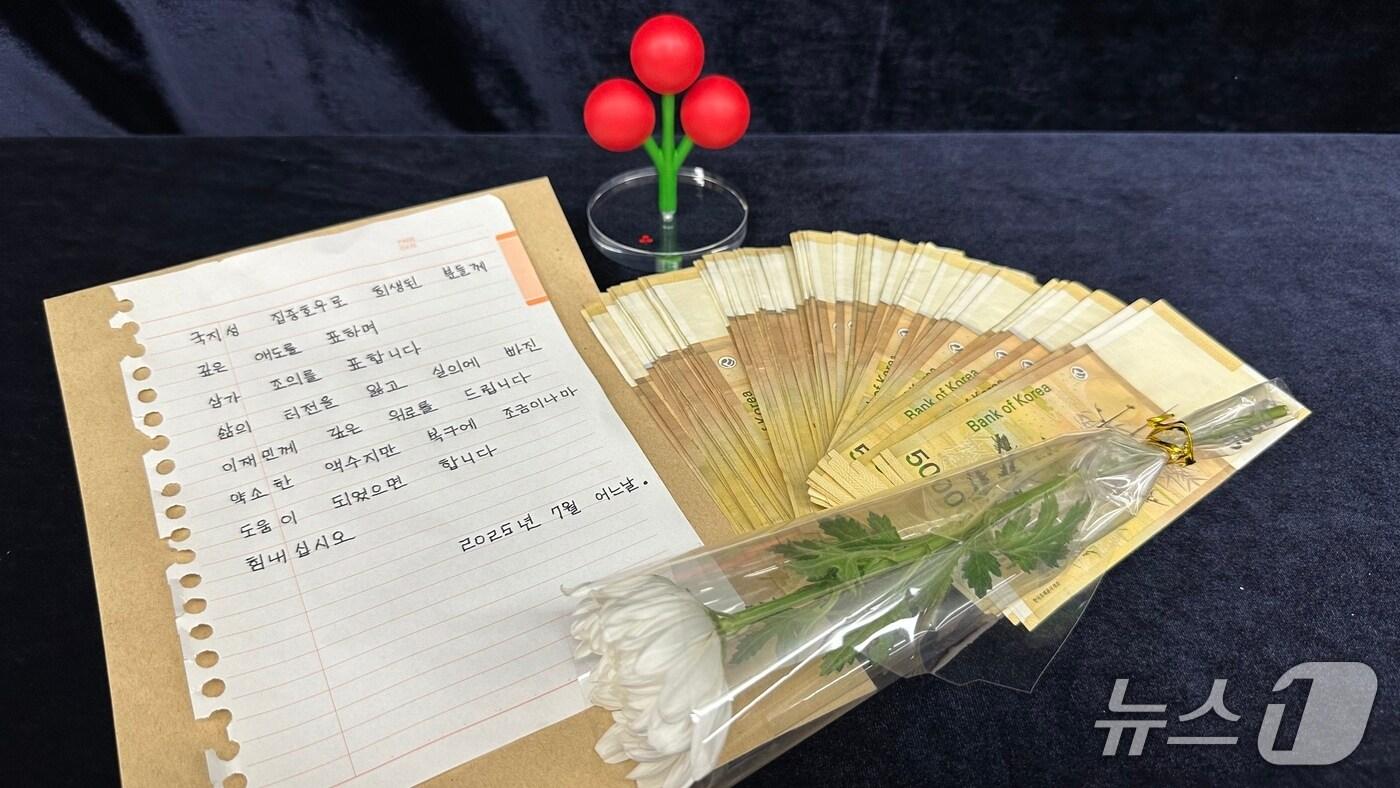 국지성 집중호우로 희생된 분들께
깊은 애도를 표하며
삼가 조의를 표합니다
삶의 터전을 잃고 실의에 빠진
이재민께 깊은 위로를 드립니다
약소한 액수지만 복구에 조금이나마
도움이 되었으면 합니다
힘내십시오
2025년 7월 어느날.
Korea
Bank of Korea
Bank of Korea
뉴스1